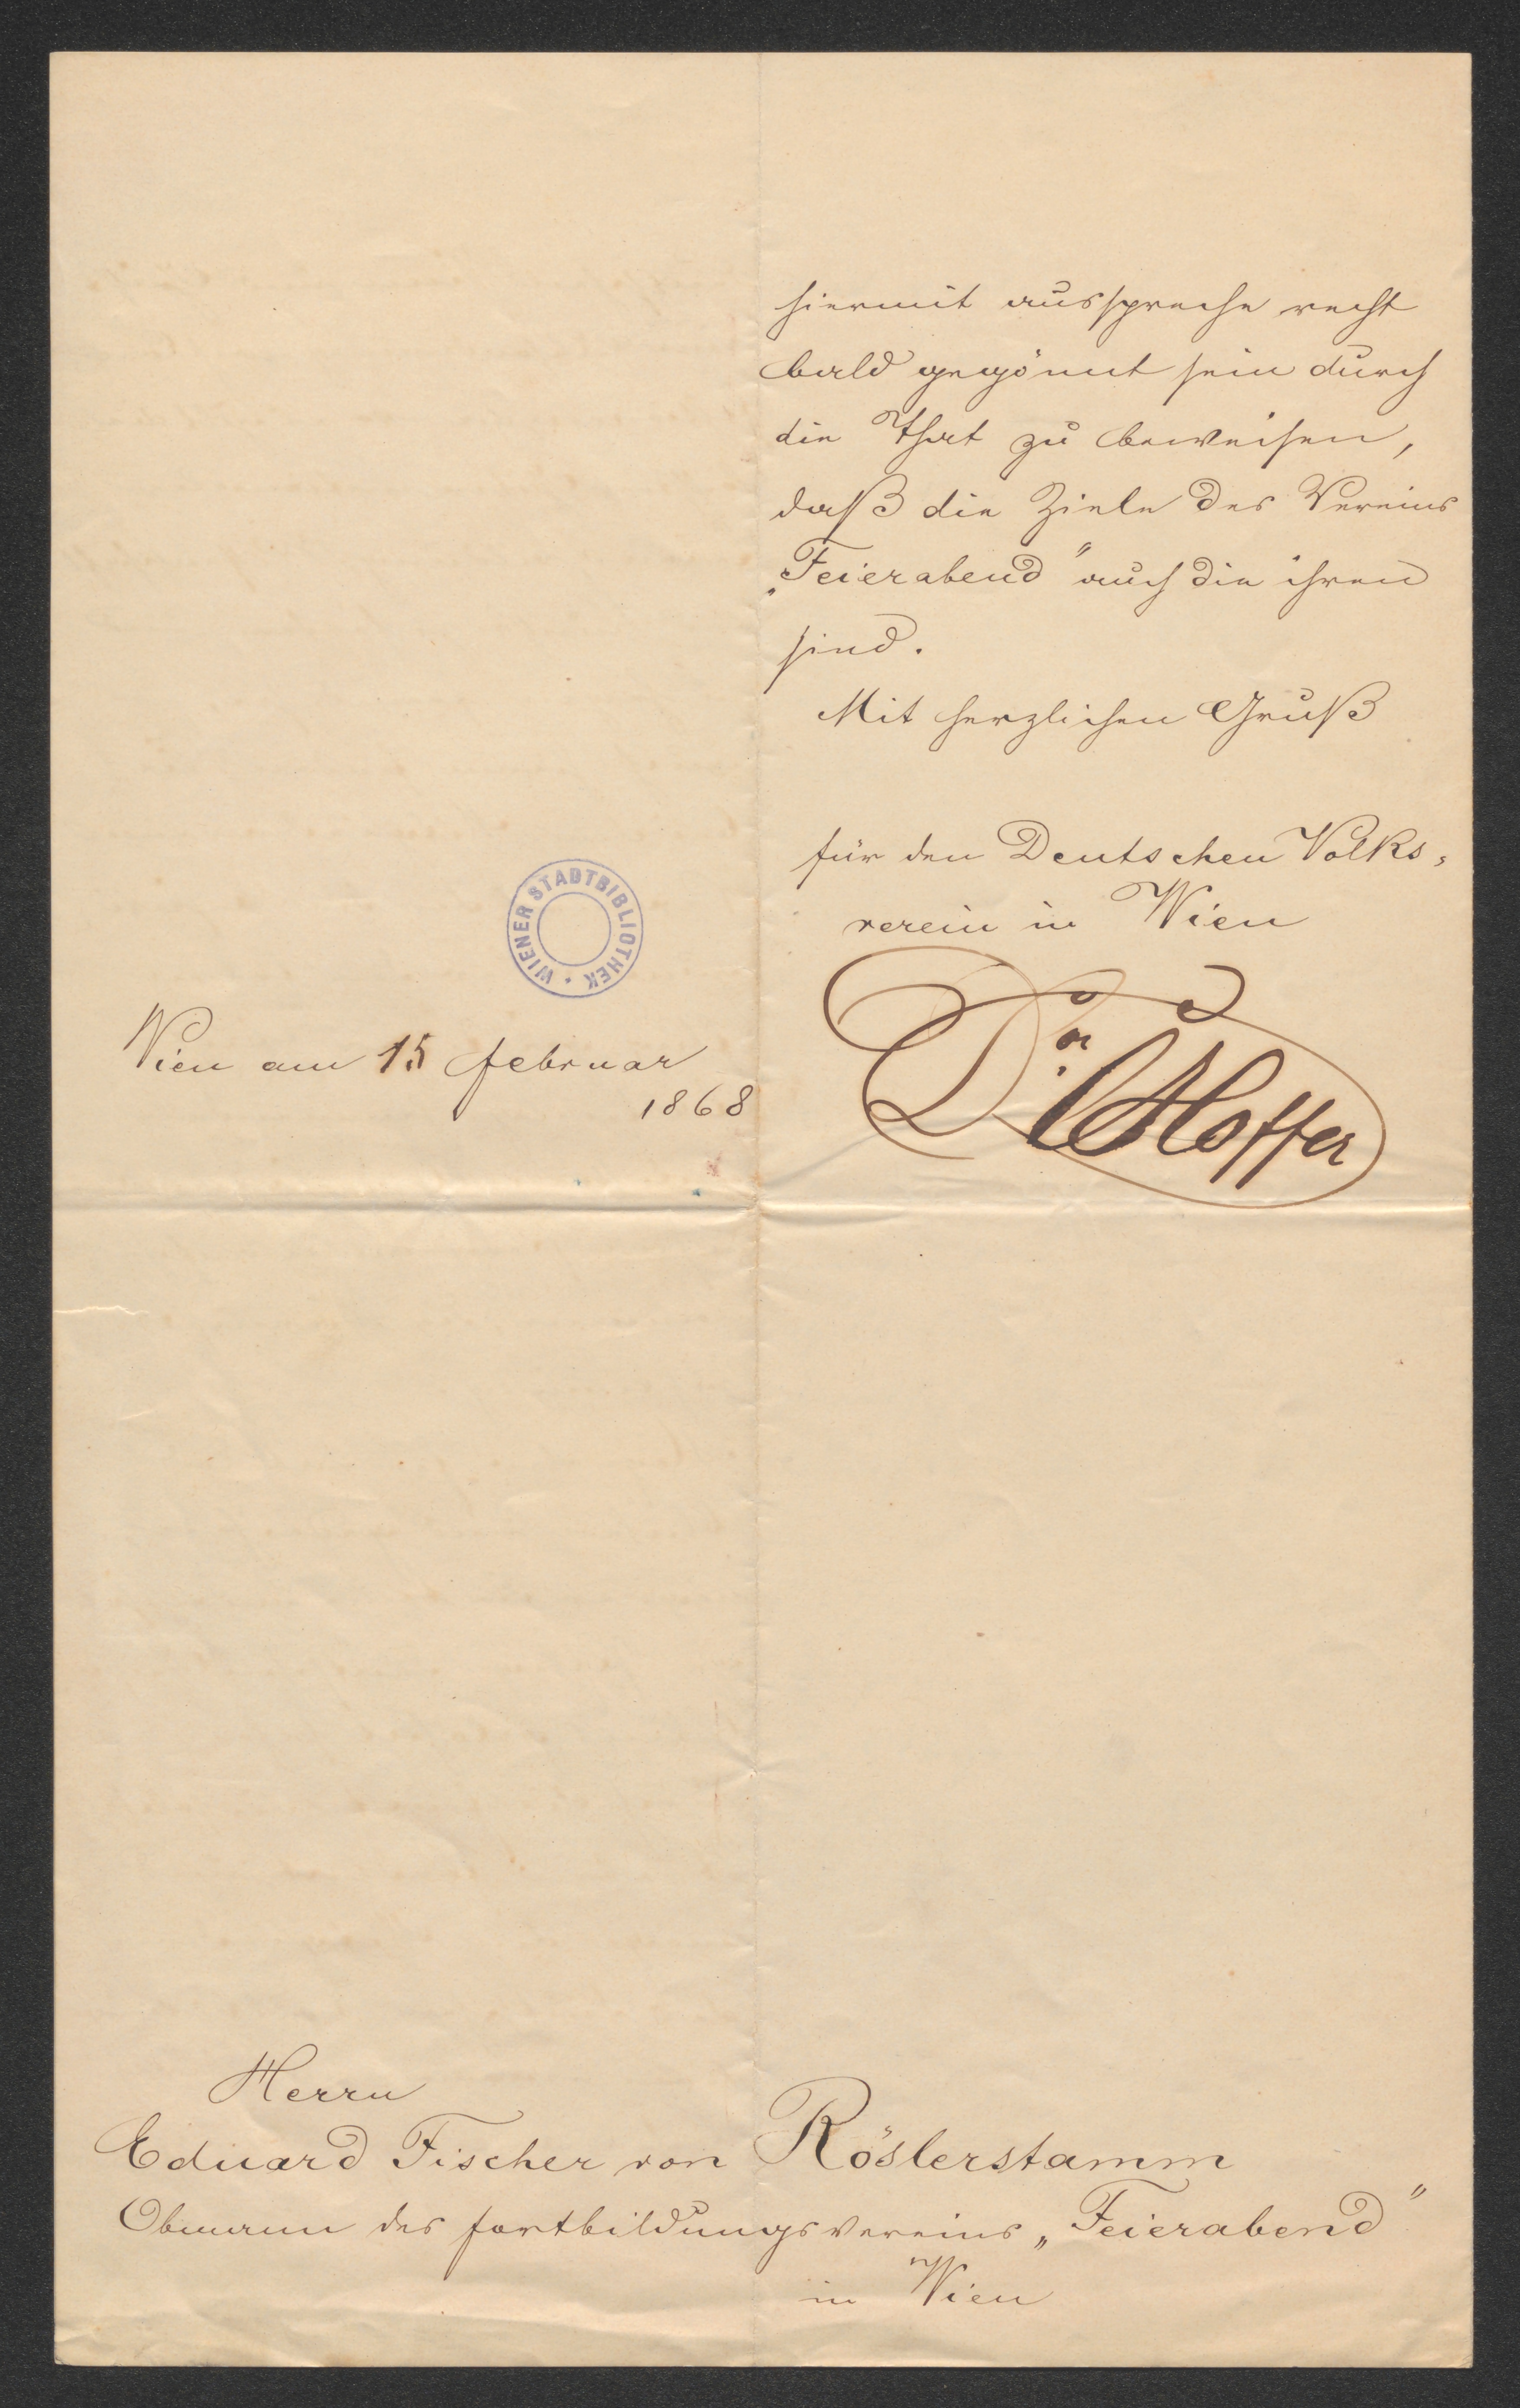 hiermit ausspreche recht
bald gegönnt sein durch
die That zu beweisen,
daß die Ziele des Vereins
„Feierabend" auch die ihren
sind.
Mit herzlichen Gruß
für den Deutschen Volks-
verein in Wien
Dr. Hoffer
WIENER STADTBIBLIOTHEK
Wien am 15 Februar
1868
Herrn
Eduard Fischer von Röslerstamm
Obmann des Fortbildungsvereins „Feierabend"
in Wien